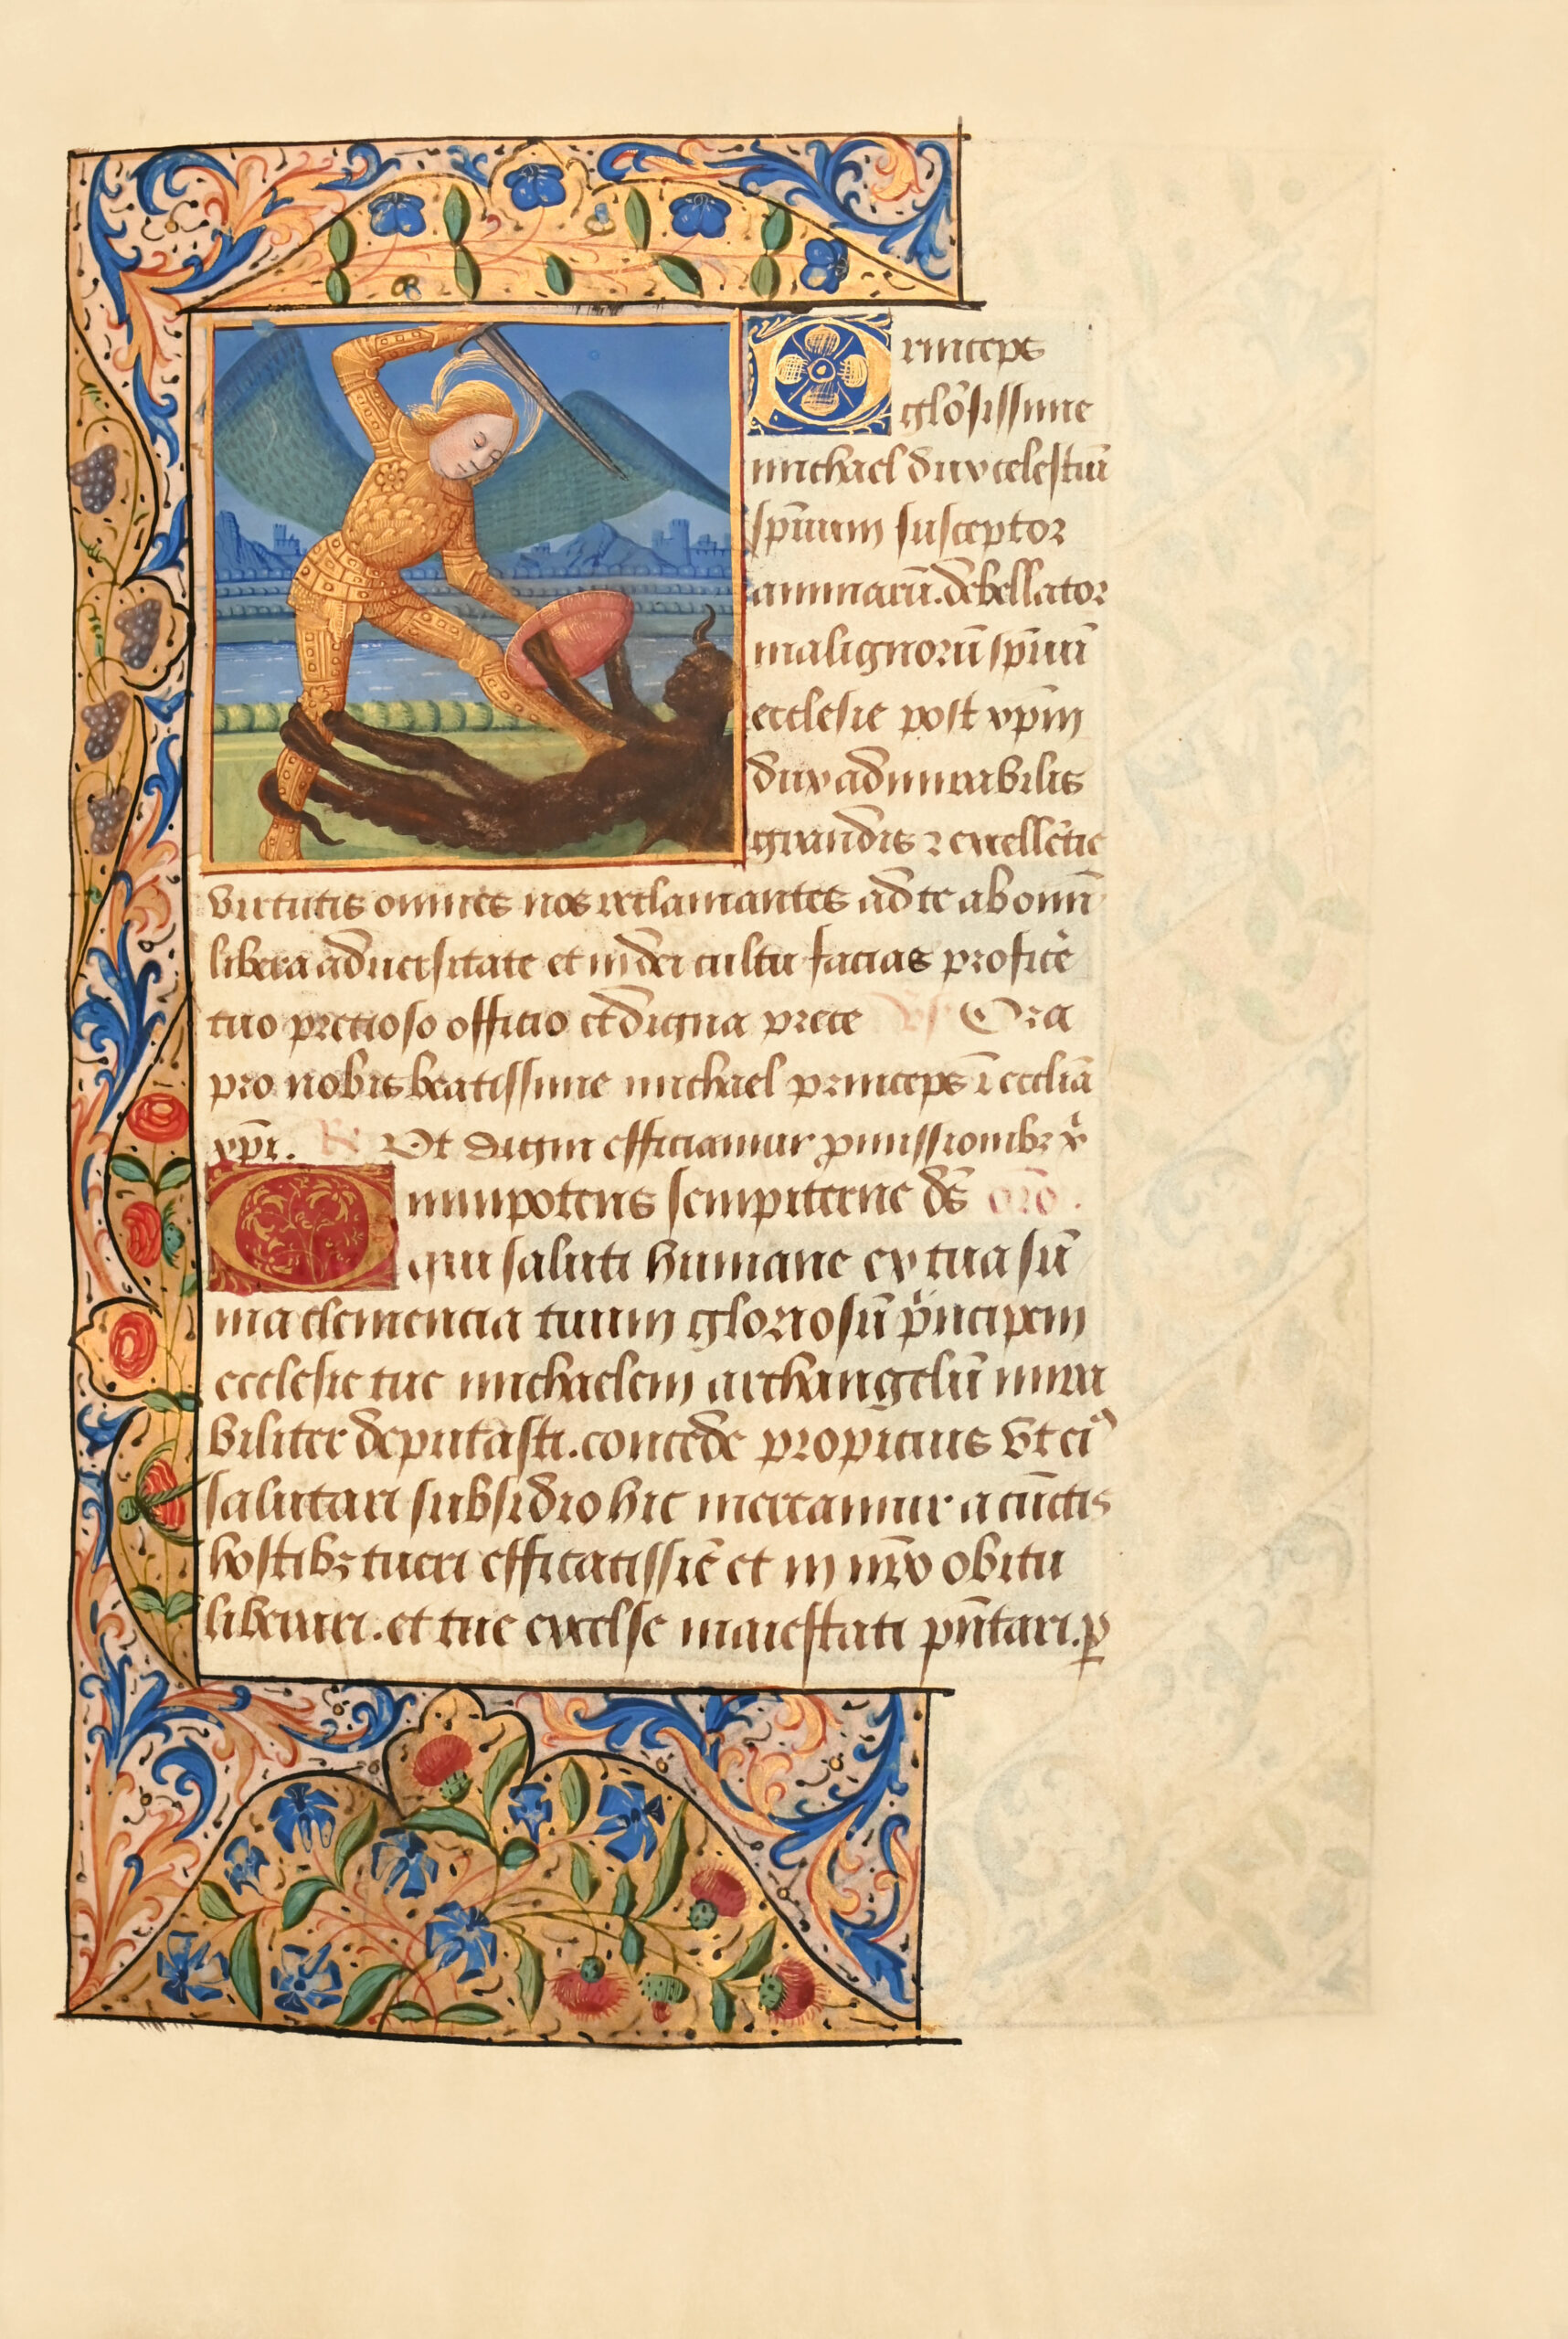 Princeps
glōsissime
michael dux celestiū
sp̄uum susceptor
animarū. debellator
malignorū sp̄uū
ecclesie post xp̄m
dux admirabilis
grandis ⁊ excellētie
virtutis omnes nos reclamantes ad te ab omni
libera aduersitate et in dei cultu facias proficē
tuo precioso officio et digna prece ℣ Ora
pro nobis beatissime michael princeps ī eccliā
xp̄i. ℟ Vt digni efficiamur ꝓmissionibꝫ x̄
Omnipotens sempiterne ds̄ orō.
qui saluti humane ex tua sū
ma clemencia tuum gloriosū pͥncipem
ecclesie tue michaelem archangelū mira
biliter deputasti. concede propicius vt eiꝰ
salutari subsidio hic mereamur a cūctis
hostibꝫ tueri efficacissīe et in nr̄o obitu
liberari. et tue excelse maiestati pn̄tari. ꝑ